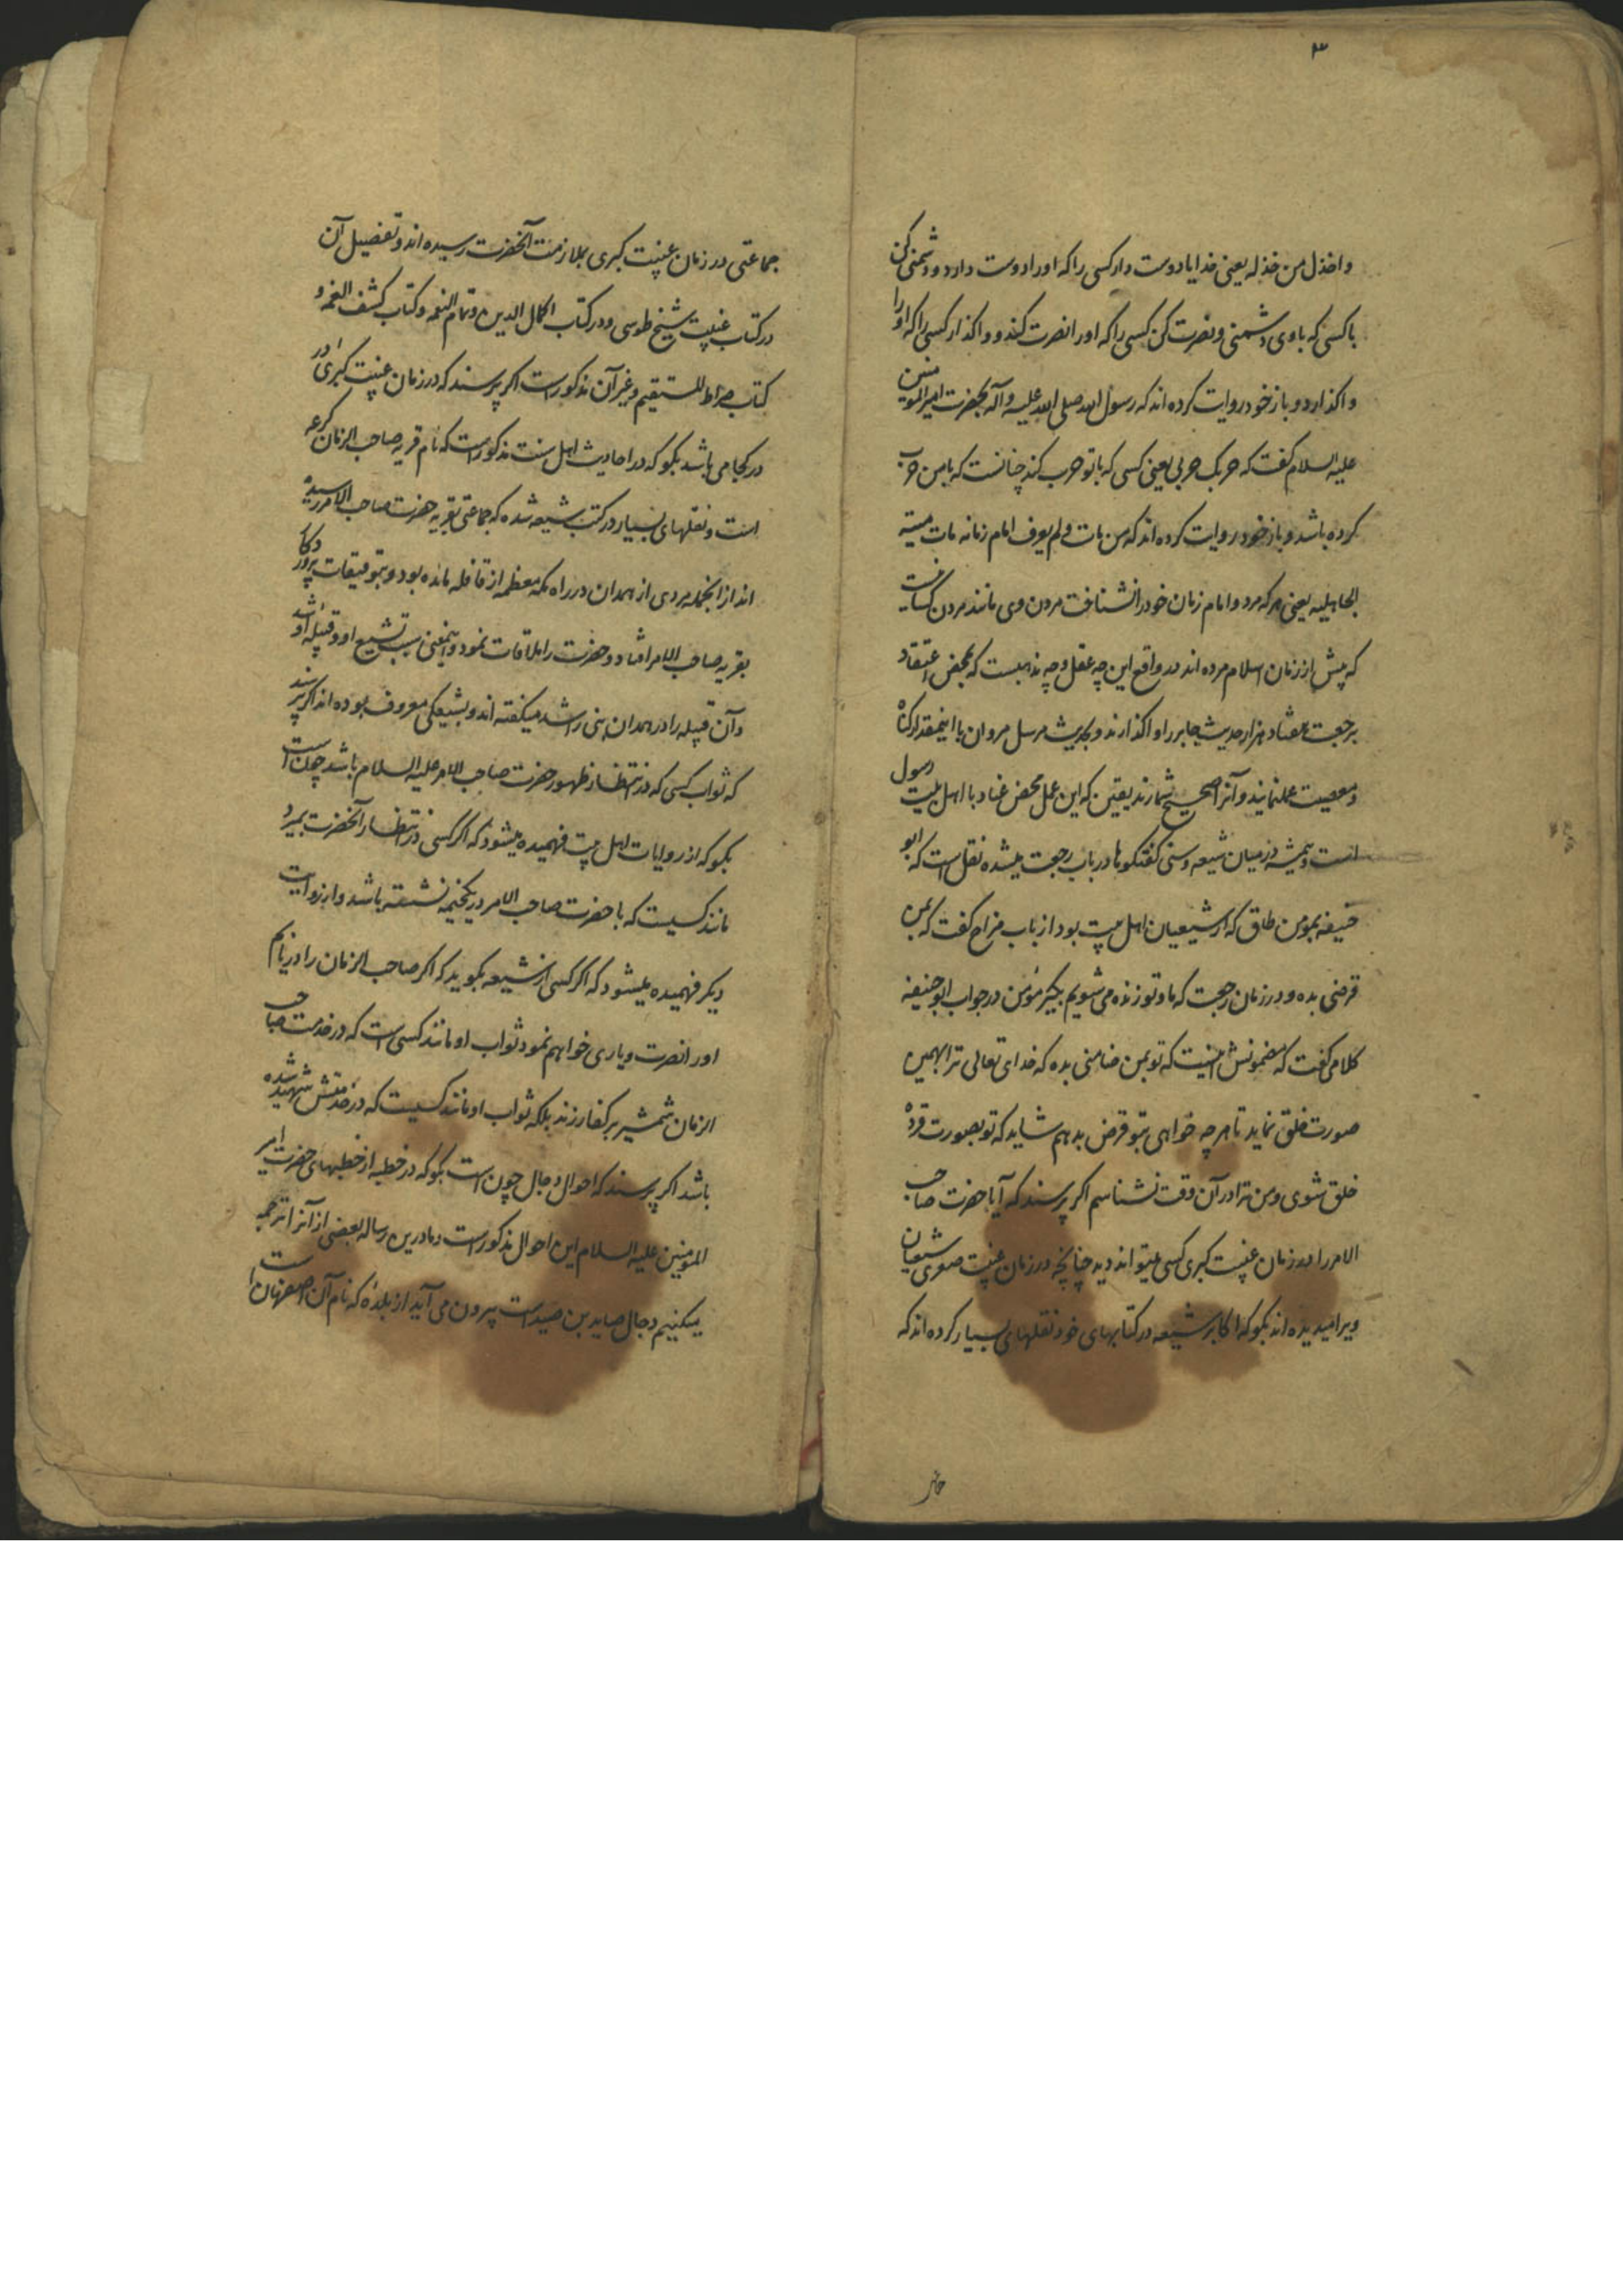 ۳
واخذل من خذله یعنی خدایا دوست دار کسی را که او را دوست دارد و دشمنی کن
با کسی که با وی دشمنی و نصرت کن کسی را که او را نصرت کند و واکذار کسی را که او را
واکذارد و باز خود روایت کرده اند که رسول الله صلی الله علیه و آله بحضرت امیر المومنین
علیه السلام کفت که حربک حربی یعنی کسی که با تو حرب کند چنانست که با من حرب
کرده باشد و باز خود روایت کرده اند که من مات و لم یعرف امام زمانه مات میتة
الجاهلیه یعنی هر که مرد و امام زمان خود را نشناخت مردن وی مانند مردن کسانیست
که پیش از زمان اسلام مرده اند در واقع این چه عقل و چه مذهبست که بمحض اعتقاد
برجعت هفتاد هزار حدیث جابر را واکذارند و بحدیث مرسل مروان با اینمقدار کناه
و معصیت عمل نمایند و آنرا صحیح شمارند یقین که این عمل محض عناد با اهل بیت رسول
است و همیشه در میان شیعه و سنی کفتکوها در باب رجعت میشده نقل است که ابو
حنیفه بمومن طاق که از شیعیان اهل بیت بود از باب مزاح کفت که بمن
قرضی بده و در زمان رجعت که ما و تو زنده می شویم بکیر مؤمن در جواب ابوحنیفه
کلامی کفت که مضمونش اینست که تو بمن ضامنی بده که خدای تعالی ترا بهمین
صورت خلق نماید تا هر چه خواهی بتو قرض بدهم شاید که تو بصورت قردة
خلق شوی و من ترا در آن وقت نشناسم اکر پرسند که آیا حضرت صاحب
الامر را در زمان غیبت کبری کسی میتواند دید چنانچه در زمان غیبت صغری شیعیان
ویرا میدیده اند بکو که اکابر شیعه در کتابهای خود نقلهای بسیار کرده اند که
جماعتی در زمان غیبت کبری بملازمت آنحضرت رسیده اند و تفصیل آن
در کتاب غیبت شیخ طوسی و در کتاب اکمال الدین و تمام النعمه و کتاب کشف الغمه و
کتاب صراط المستقیم و غیر آن مذکور است اکر پرسند که در زمان غیبت کبری در
در کجا می باشد بکو که در احادیث اهل سنت مذکور است که نام قریه صاحب الزمان کرعه
است و نقلهای بسیار در کتب شیعه شده که جماعتی بقریه حضرت صاحب الامر رسیده
اند از انجمله مردی از همدان در راه مکه معظمه از قافله مانده بود و بتوفیقات پروردکار
بقریه صاحب الامر افتاد و حضرت را ملاقات نمود و اینمعنی سبب تشیع او و قبیله او شد
و آن قبیله را در همدان بنی راشد میکفته اند و بشیعکی معروف بوده اند اکر پرسند
که ثواب کسی که در انتظار ظهور حضرت صاحب الامر علیه السلام باشد چون است
بکو که از روایات اهل بیت فهمیده میشود که اکر کسی در انتظار آنحضرت بمیرد
مانند کسیست که با حضرت صاحب الامر در یکخیمه نشسته باشد و از روایت
دیکر فهمیده میشود که اکر کسی از شیعه بکوید که اکر صاحب الزمان را دریابم
او را نصرت و یاری خواهم نمود ثواب او مانند کسی است که در خدمت صاحب
الزمان شمشیر بر کفار زند بلکه ثواب او مانند کسیست که در خدمتش شهید شده
باشد اکر پرسند که احوال دجال چون است بکو که در خطبه از خطبهای حضرت امیر
المومنین علیه السلام این احوال مذکور است و ما درین رساله بعضی از آنرا ترجمه
میکنیم دجال صاید بن صید است بیرون می آید از بلده که نام آن اصفهان است